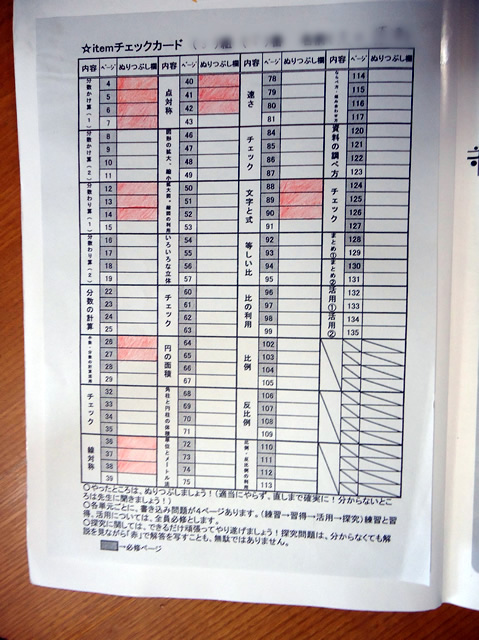 ☆itemチェックカード
内容 ページ ぬりつぶし欄 内容 ページ ぬりつぶし欄 内容 ページ ぬりつぶし欄 内容 ページ ぬりつぶし欄
分数かけ算(1) 4 5 6 7 点対称 40 41 42 43 速さ 78 79 80 81 114 115 116 117
分数かけ算(2) 8 9 10 11 46 47 48 49 チェック 84 85 86 87 資料の調べ方 120 121 122 123
分数わり算(1) 12 13 14 15 50 51 52 53 文字と式 88 89 90 91 チェック 124 125 126 127
分数わり算(2) 16 17 18 19 いろいろな立体 54 55 56 57 等しい比 92 93 94 95 まとめ① まとめ② 128 129 130 131
分数の計算 22 23 24 25 チェック 60 61 62 63 比の利用 96 97 98 99 活用① 活用② 132 133 134 135
26 27 28 29 円の面積 64 65 66 67 比例 102 103 104 105
チェック 32 33 34 35 68 69 70 71 反比例 106 107 108 109
線対称 36 37 38 39 72 73 74 75 比例・反比例の利用 110 111 112 113
○やったところは、ぬりつぶしましょう!(適当にやらず、直しまで確実に!分からないとこ
ろは先生に聞きましょう!)
○各単元ごとに、書き込み問題が4ページあります。(練習→習得→活用→探究)練習と習
得、活用については、全員必修とします。
○探究に関しては、できるだけ頑張ってやり遂げましょう!探究問題は、分からなくても解
説を見ながら「赤」で解答を写すことも、無駄ではありません。
→必修ページ